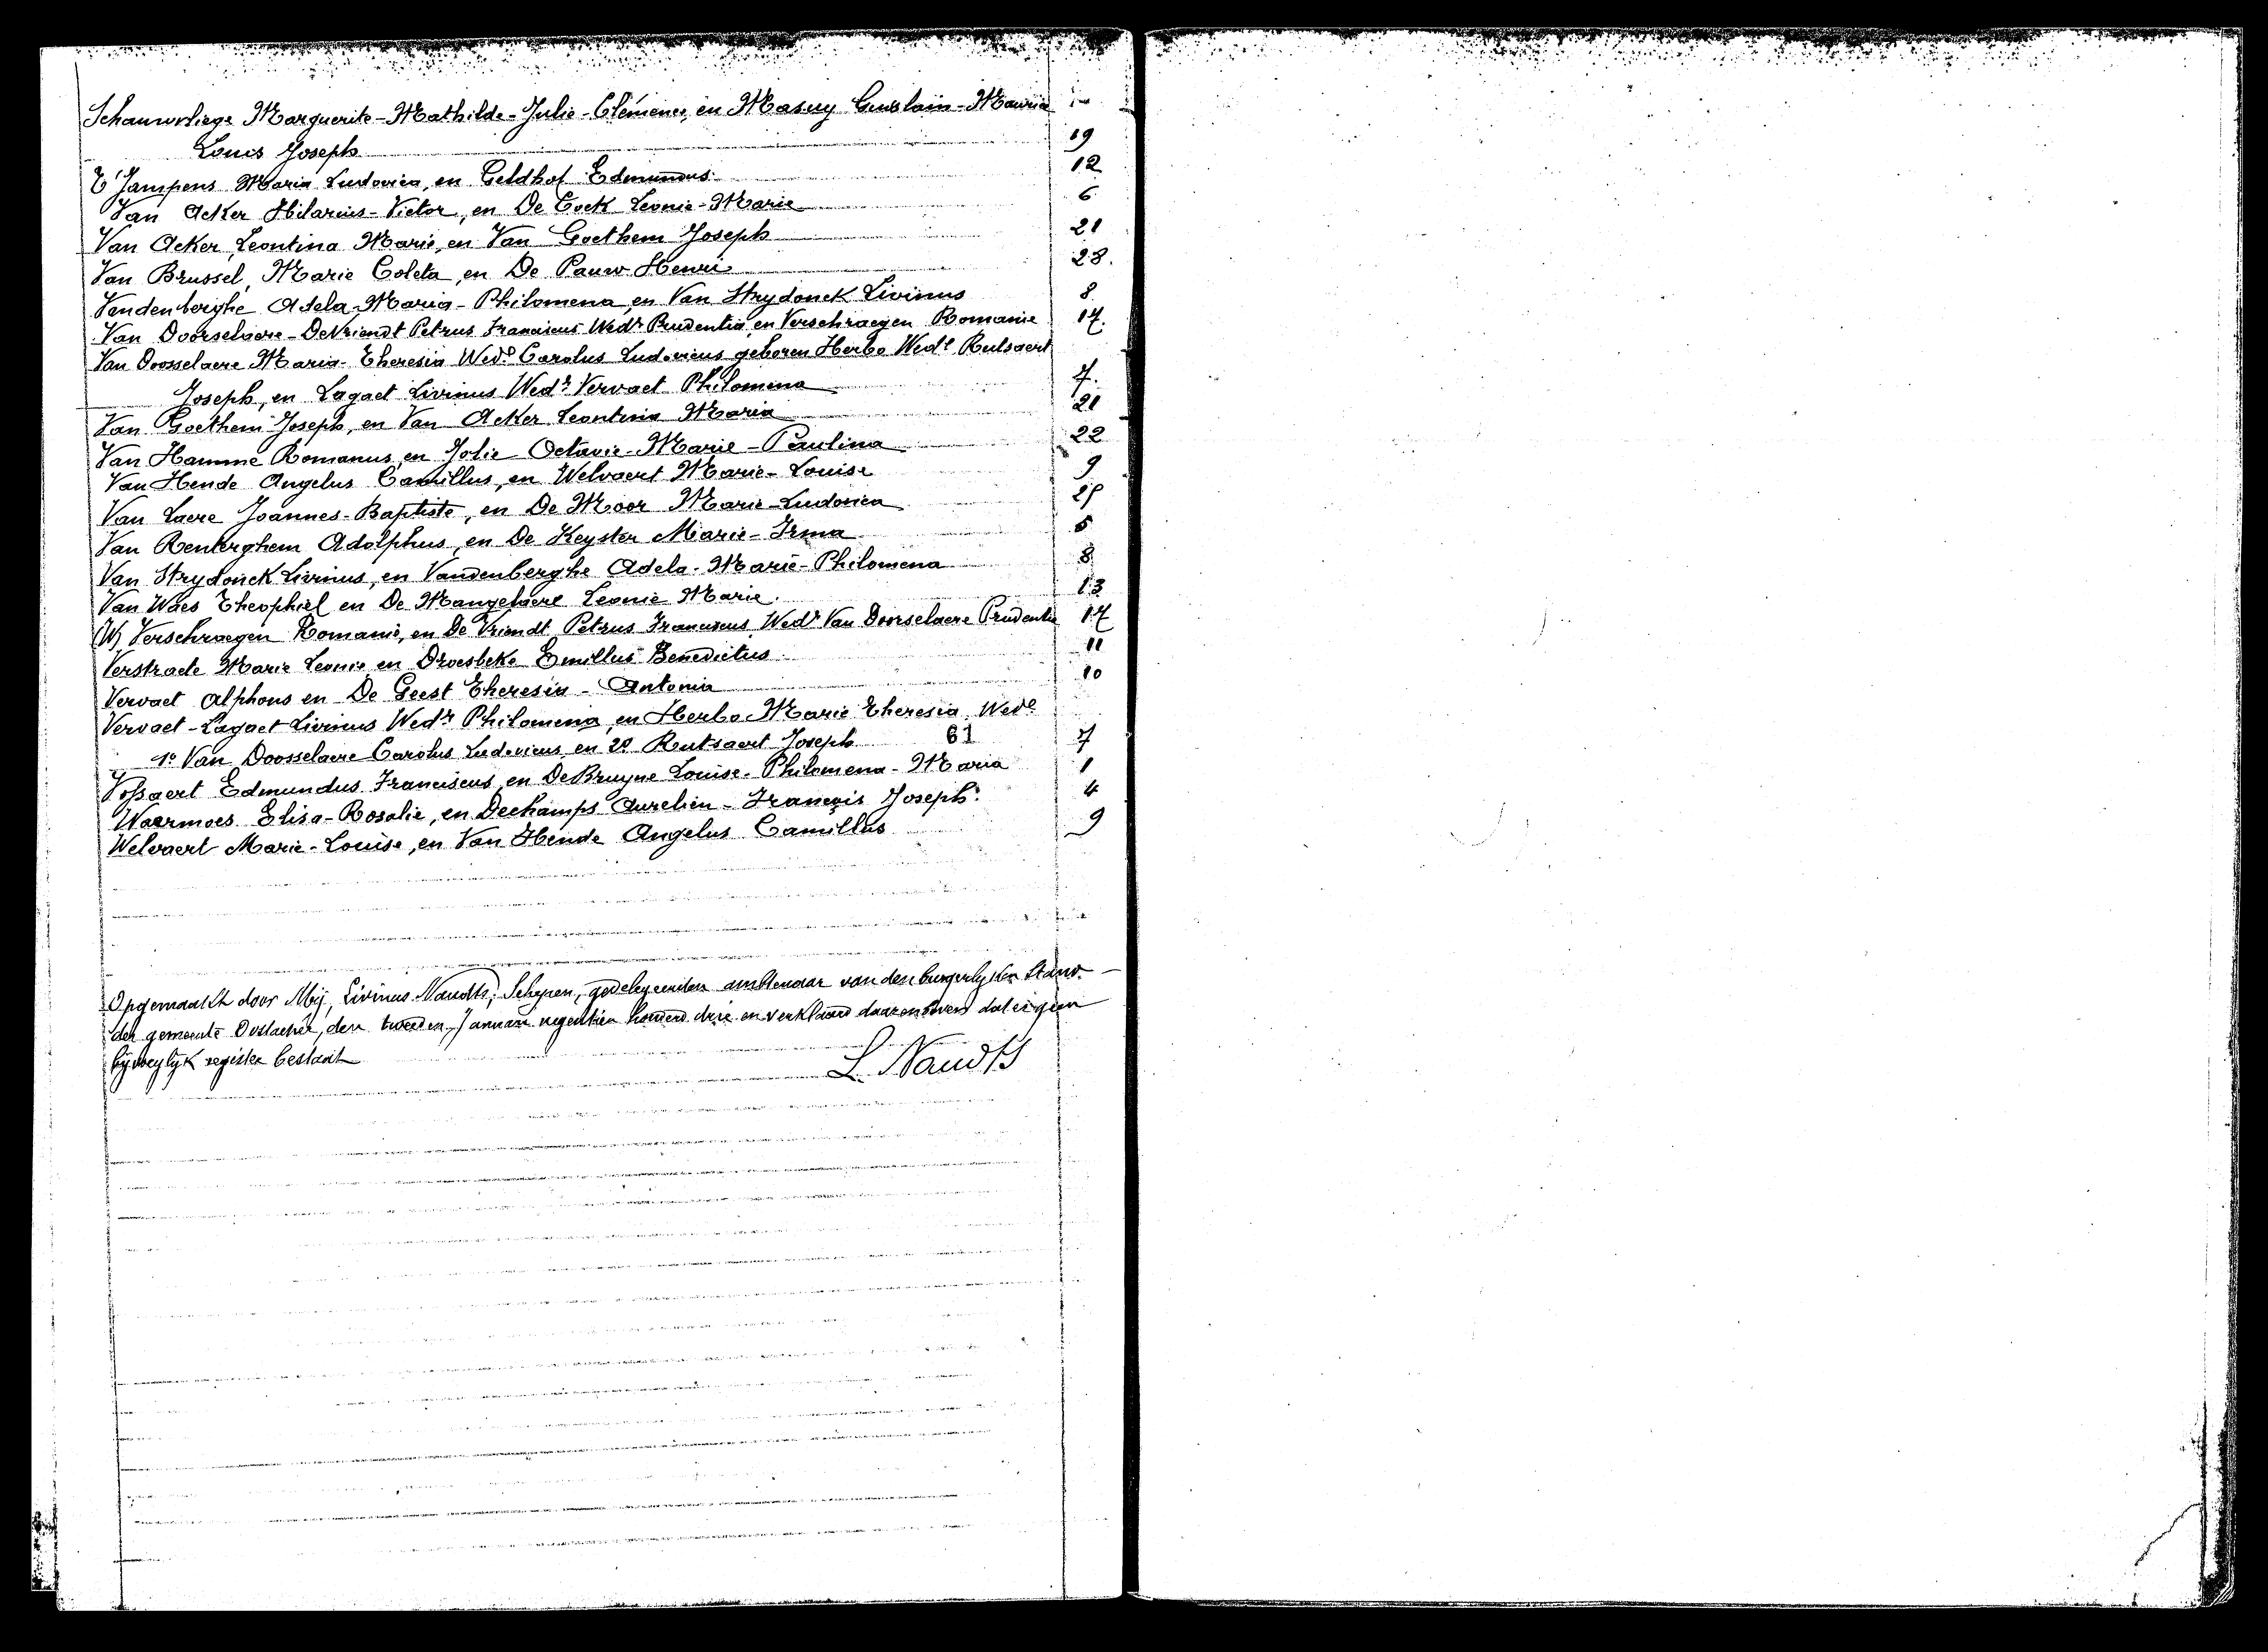 Schauwvliege Marguerite-Mathilde-Julie-Clémence, en Masuy Guislain-Maurice
Louis Joseph 19
T'Jampens Maria Ludovica, en Geldhof Edmundus 12
Van Acker Hilarius-Victor, en De Cock Leonie-Marie 6
Van Acker, Leontina Marie, en Van Goethem Joseph 21
Van Brussel, Marie Coleta, en De Pauw Henri 23.
Vandenberghe Adela-Maria-Philomena, en Van Strydonck Livinus 8
Van Doorselaere-DeVriendt Petrus Franciscus Wedr Prudentia, en Verschraegen Romanie 17.
Van Doosselaere Maria-Theresia Wede Carolus Ludovicus geboren Herbo Wede Rutsaert
Joseph, en Lagaet Livinus Wedr Vervaet Philomena 7.
Van Goethem Joseph, en Van Acker Leontina Maria 21
Van Hamme Romanus, en Jolie Octavie-Marie-Paulina 22
Van Hende Angelus Camillus, en Welvaert Marie-Louise 9
Van Laere Joannes-Baptiste, en De Moor Marie-Ludovica
Van Renterghem Adolphus, en De Keyster Marie-Irma 5
Van Strydonck Livinus, en Vandenberghe Adela-Marie-Philomena 8
Van Waes Theophiel en De Mangelaere Leonie Marie. 13
(W) Verschraegen Romanie, en De Vriendt Petrus Franciscus Wedr Van Doorselaere Prudentia 17
Verstraete Marie Leonie en Droesbeke Emillus Benedictus 11
Vervaet Alphons en De Geest Theresia-Antonia 10
Vervaet-Lagaet Livinus Wedr Philomena, en Herbo Marie Theresia Wede
1o Van Doosselaere Carolus Ludovicus en 2o Rutsaert Joseph 61 7
Vossaert Edmundus Franciscus, en DeBruyne Louise-Philomena-Maria 1
Waermoes Elisa-Rosalie, en Dechamps Aurelien-François Joseph. 4
Welvaert Marie-Louise, en Van Hende Angelus Camillus 9
Opgemaakt door Mij, Livinus Naudts, Schepen, gedelegeerden ambtenaar van den burgerlyken Stand
der gemeente Oostacker, den tweeden Januari negentien honderd drie en verklaard daarenboven dat er geen
bijvoeglyk register bestaat
L. Naudts